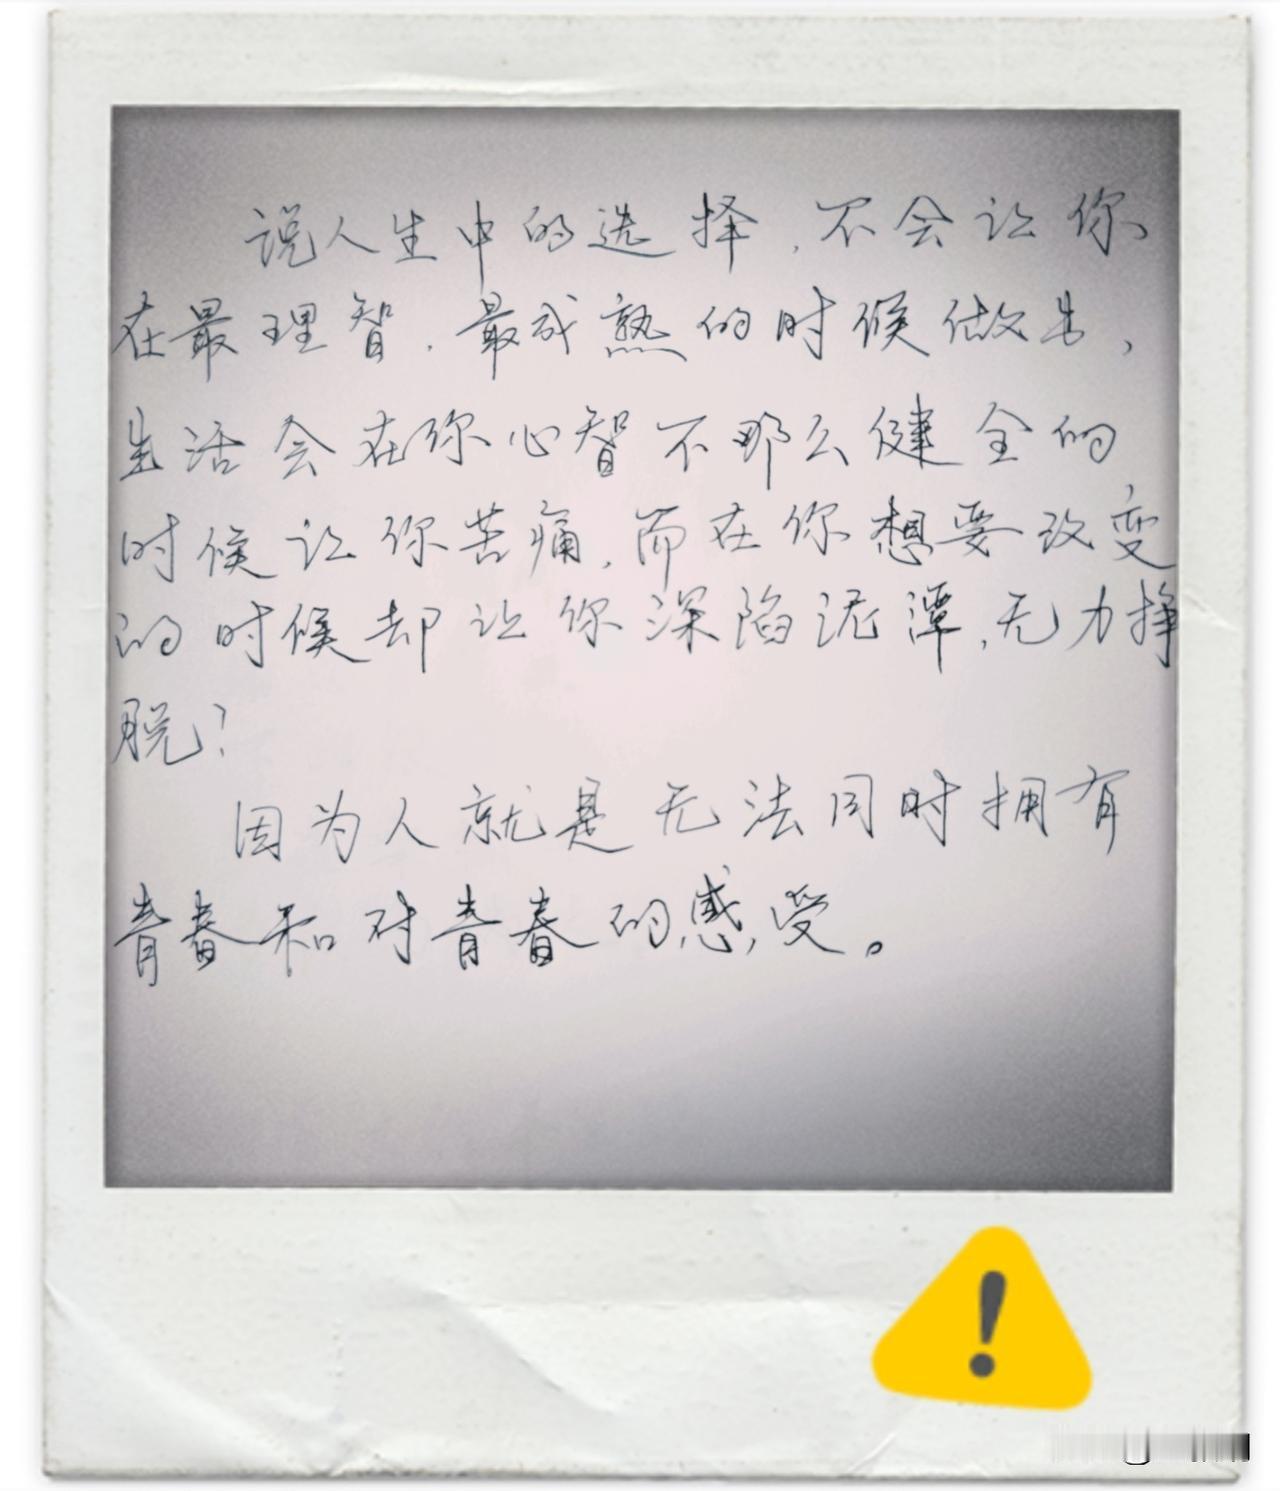 说人生中的选择，不会让你
在最理智、最成熟的时候做出，
生活会在你心智不那么健全的
时候让你苦痛，而在你想要改变
的时候却让你深陷泥潭，无力挣
脱？
因为人就是无法同时拥有
青春和对青春的感受。